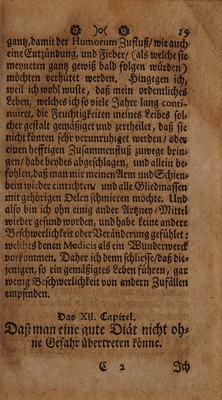 19
gantz, damit der Humorum Zufluß / wie auch
eine Entzündung, und Fieber / (als welche sie
meyneten gantz gewiß bald folgen würden)
möchten verhütet werden. Hingegen ich,
weil ich wohl wuste, daß mein ordentliches
Leben, welches ich so viele Jahre lang conti-
nuiret, die Feuchtigkeiten meines Leibes sol-
cher gestalt gemäßiget und zertheilet, daß sie
nicht könten sehr verunruhiget werden / oder
einen hefftigen Zusammenfluß zuwege brin-
gen / habe beydes abgeschlagen, und allein be-
fohlen, daß man mir meinen Arm und Schien-
bein wieder einrichten / und alle Gliedmassen
mit gehörigen Oelen schmieren möchte. Und
also bin ich ohn einig andre Artzney-Mittel
wieder gesund worden, und habe keine andere
Beschwerlichkeit oder Veränderung gefühlet:
welches denen Medicis als ein Wunderwerck
vorkommen. Daher ich denn schliesse / daß die-
jenigen, so ein gemäßigtes Leben führen, gar
wenig Beschwerlichkeit von andern Zufällen
empfinden.
Das XII. Capitel.
Daß man eine gute Diät nicht oh-
ne Gefahr übertreten könne.
C 2 Ich